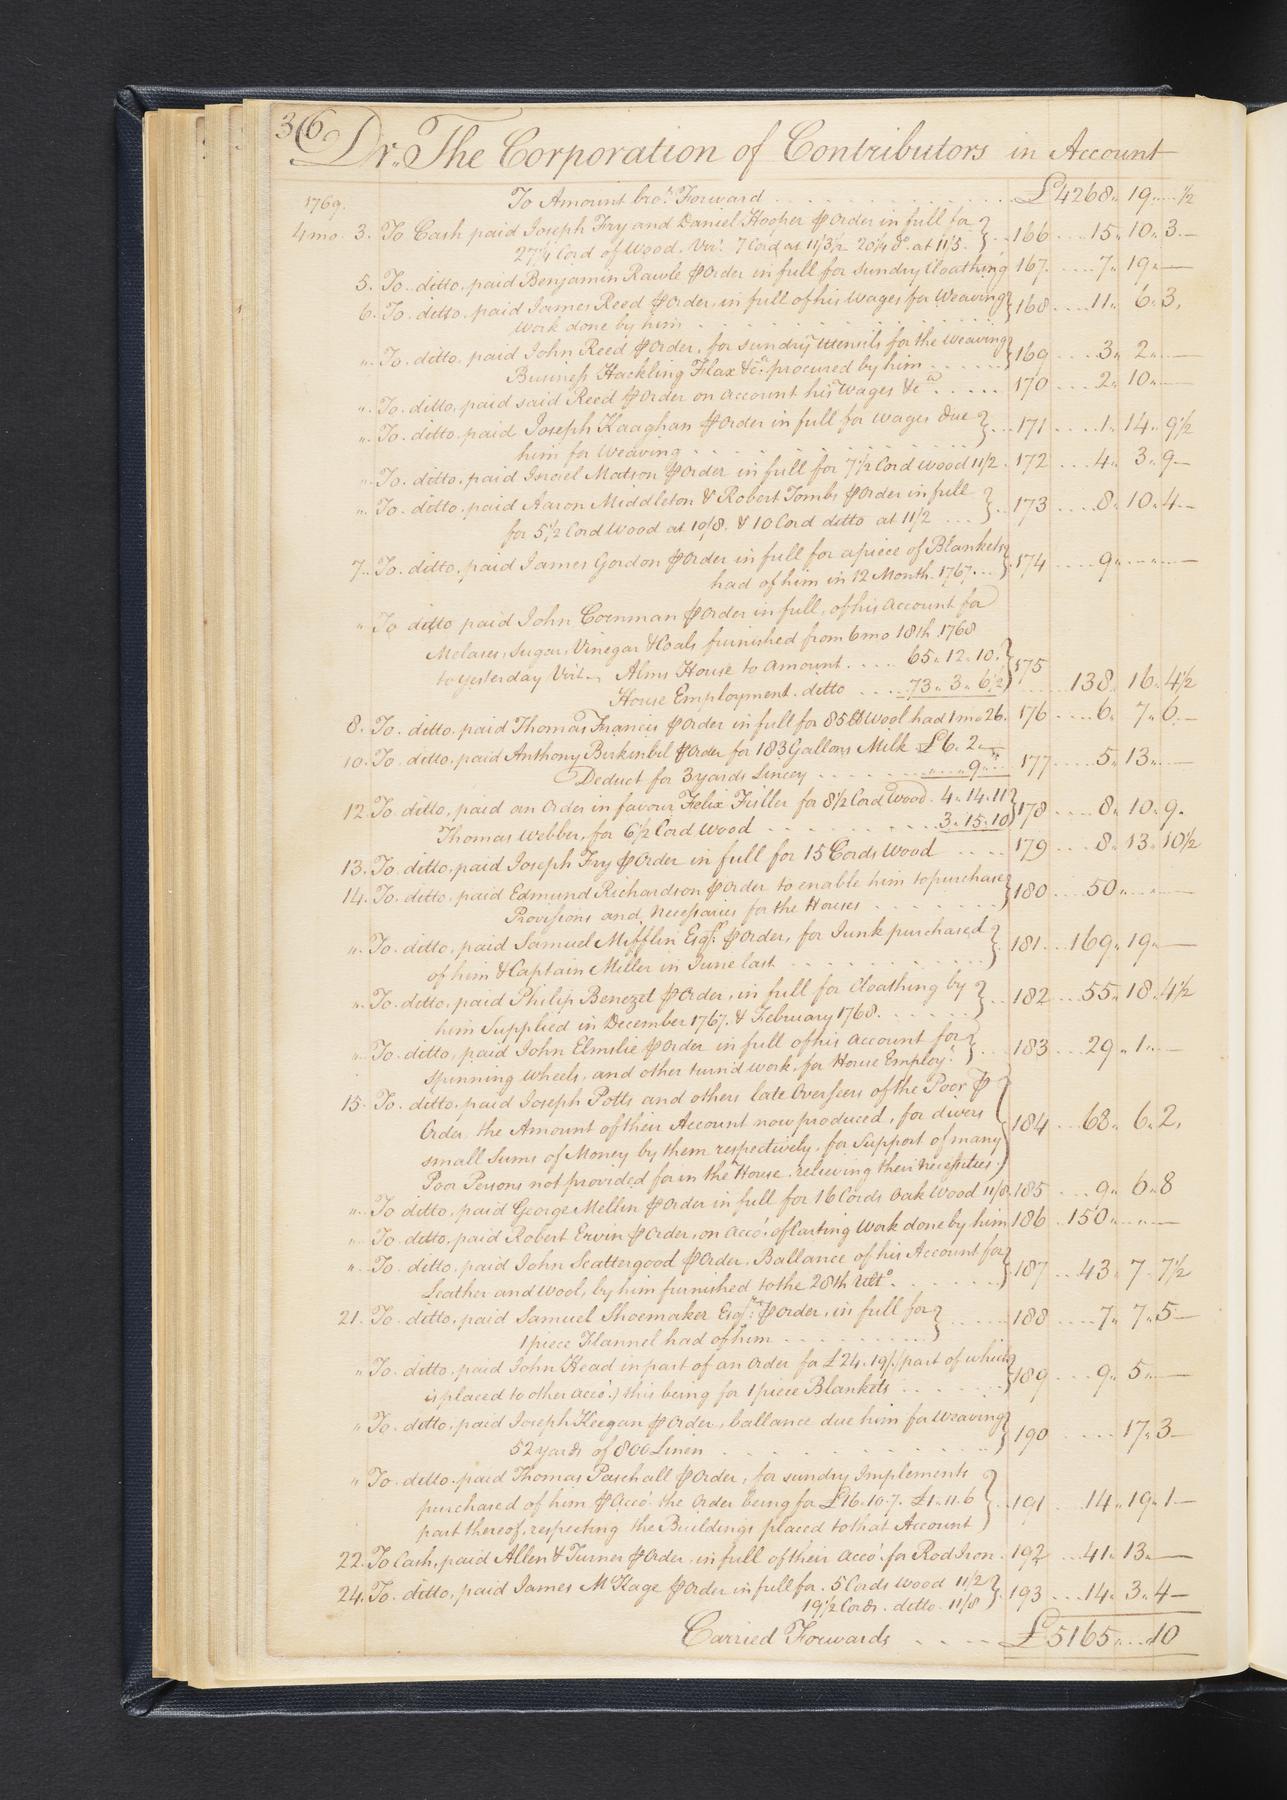 36
Dr. The Corporation of Contributors in Account
1769. To Amount bro.t Forward £4268 " 19 " ½
4 mo 3. To Cash paid Joseph Fry and Daniel Hooper ⅌ Order in full for
27¼ Cord of Wood. Viz.t 7 Cord at 11/3½ 20¼ d.o at 11/5. } 166 15 " 10 " 3 —
5. To ditto, paid Benjamin Rawle ⅌ Order in full for sundry Cloathing 167. 7 " 19 " —
6. To ditto, paid James Reed ⅌ Order, in full of his Wages for Weaving
Work done by him } 168 11 " 6 " 3.
" To ditto, paid John Reed ⅌ Order, for sundry utensils for the Weaving
Business Hackling Flax &c.a procured by him } 169 3 " 2 " —
" To ditto, paid said Reed ⅌ Order on Account his Wages &c.a 170 2 " 10 " —
" To ditto paid Joseph Kaaghan ⅌ Order in full for Wages due
him for Weaving } 171 1 " 14 " 9½
" To ditto, paid Israel Matson ⅌ Order in full for 7½ Cord Wood 11/2. 172 4 " 3 " 9 —
" To ditto, paid Aaron Middleton & Robert Tombs ⅌ Order in full
for 5½ Cord Wood at 10/8. & 10 Cord ditto at 11/2 } 173 8 " 10 " 4 —
7. To ditto, paid James Gordon ⅌ Order in full for a piece of Blankets
had of him in 12 Month. 1767. } 174 9 " — " —
" To ditto paid John Cornman ⅌ Order in full, of his Account for
Molases, Sugar, Vinegar & Coals furnished from 6 mo 18th 1768
to yesterday Viz.t Alms House to Amount 65 " 12 " 10.
House Employment. ditto 73 " 3 " 6½ } 175 138 " 16 " 4½
8. To ditto, paid Thomas Francis ⅌ Order in full for 85 lb Wool had 1 mo 26. 176 6 " 7 " 6 —
10. To ditto, paid Anthony Birkinbil ⅌ Order for 183 Gallons Milk £6. 2 —
Deduct for 3 yards Lincey " 9 " — 177 5 " 13 " —
12. To ditto, paid an Order in favour Felix Fuller for 8½ Cord Wood. 4 " 14 " 11
Thomas Webber, for 6½ Cord Wood 3 " 15 " 10 } 178 8 " 10 " 9.
13. To ditto, paid Joseph Fry ⅌ Order in full for 15 Cords Wood 179 8 " 13 " 10½
14. To ditto, paid Edmund Richardson ⅌ Order to enable him to purchase
Provisions and Necessaries for the Houses } 180 50 " — " —
" To ditto, paid Samuel Mifflin Esq.r ⅌ Order, for Junk purchased
of him & Captain Miller in June last } 181 169 " 19 " —
" To ditto, paid Philip Benezet ⅌ Order, in full for Cloathing by
him Supplied in December 1767. & February 1768. } 182 55 " 18 " 4½
" To ditto, paid John Elmslie ⅌ Order in full of his account for
Spinning Wheels, and other turn'd work, for House Employ.t } 183 29 " 1 " —
15. To ditto, paid Joseph Potts and others late Overseers of the Poor ⅌
Order, the Amount of their Account now produced, for divers
small Sums of Money by them respectively, for Support of many
Poor Persons not provided for in the House, relieving their Necessities. } 184 68 " 6 " 2.
" To ditto, paid George Mellin ⅌ Order in full for 16 Cords Oak Wood 11/8. 185 9 " 6 " 8
" To ditto, paid Robert Ervin ⅌ Order, on Acco.t of Carting Work done by him 186 150 " — " —
" To ditto, paid John Scattergood ⅌ Order, Ballance of his Account for
Leather and Wool, by him furnished to the 28th Ult.o } 187 43 " 7 " 7½
21. To ditto, paid Samuel Shoemaker Esq.r ⅌ Order, in full for
1 piece Flannel had of him } 188 7 " 7 " 5 —
" To ditto, paid John Head in part of an Order for £24. 19/. (part of which
is placed to other Acco.t) this being for 1 piece Blankets } 189 9 " 5 " —
" To ditto, paid Joseph Keegan ⅌ Order, ballance due him for Weaving
52 yards of 800 Linen } 190 17 " 3 —
" To ditto, paid Thomas Paschall ⅌ Order, for sundry Implements
purchased of him ⅌ Acco.t the Order being for £16. 10. 7. £1. 11. 6
part thereof, respecting the Buildings placed to that Account } 191 14 " 19 " 1 —
22. To Cash, paid Allen & Turner ⅌ Order, in full of their Acco.t for Rod Iron. 192 41 " 13 " —
24. To ditto, paid James McKage ⅌ Order in full for 5 Cords Wood 11/2
19½ Cords. ditto. 11/8 } 193 14 " 3 " 4 —
Carried Forwards £5165 " " 10